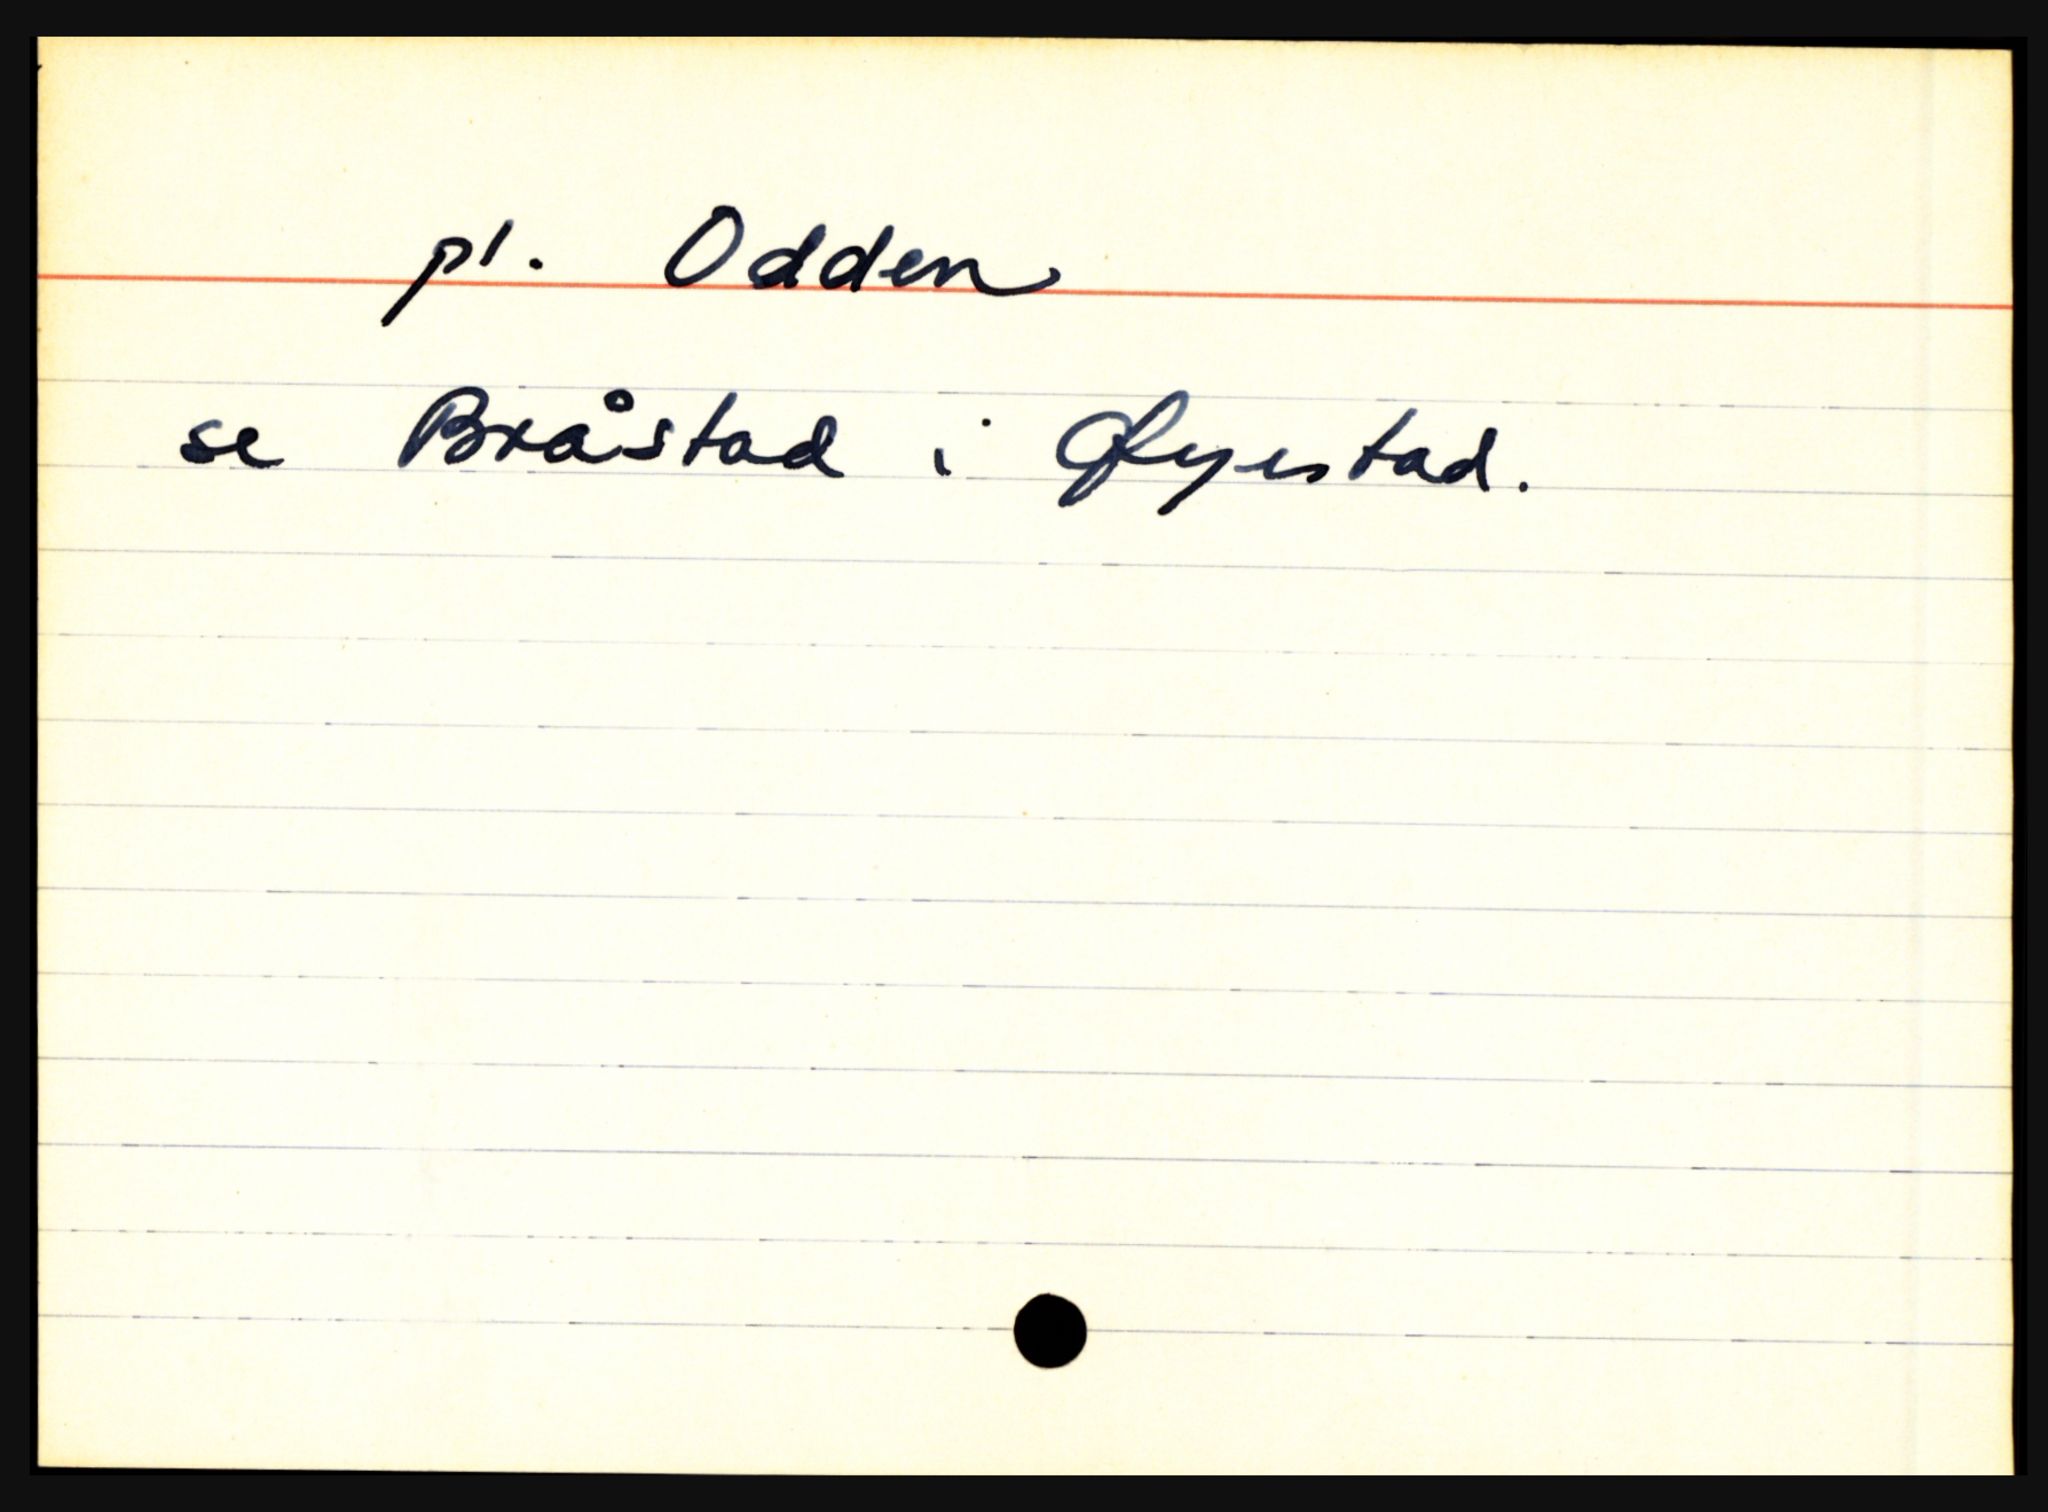 pl. Odden
se Bråstad i Øyestad.